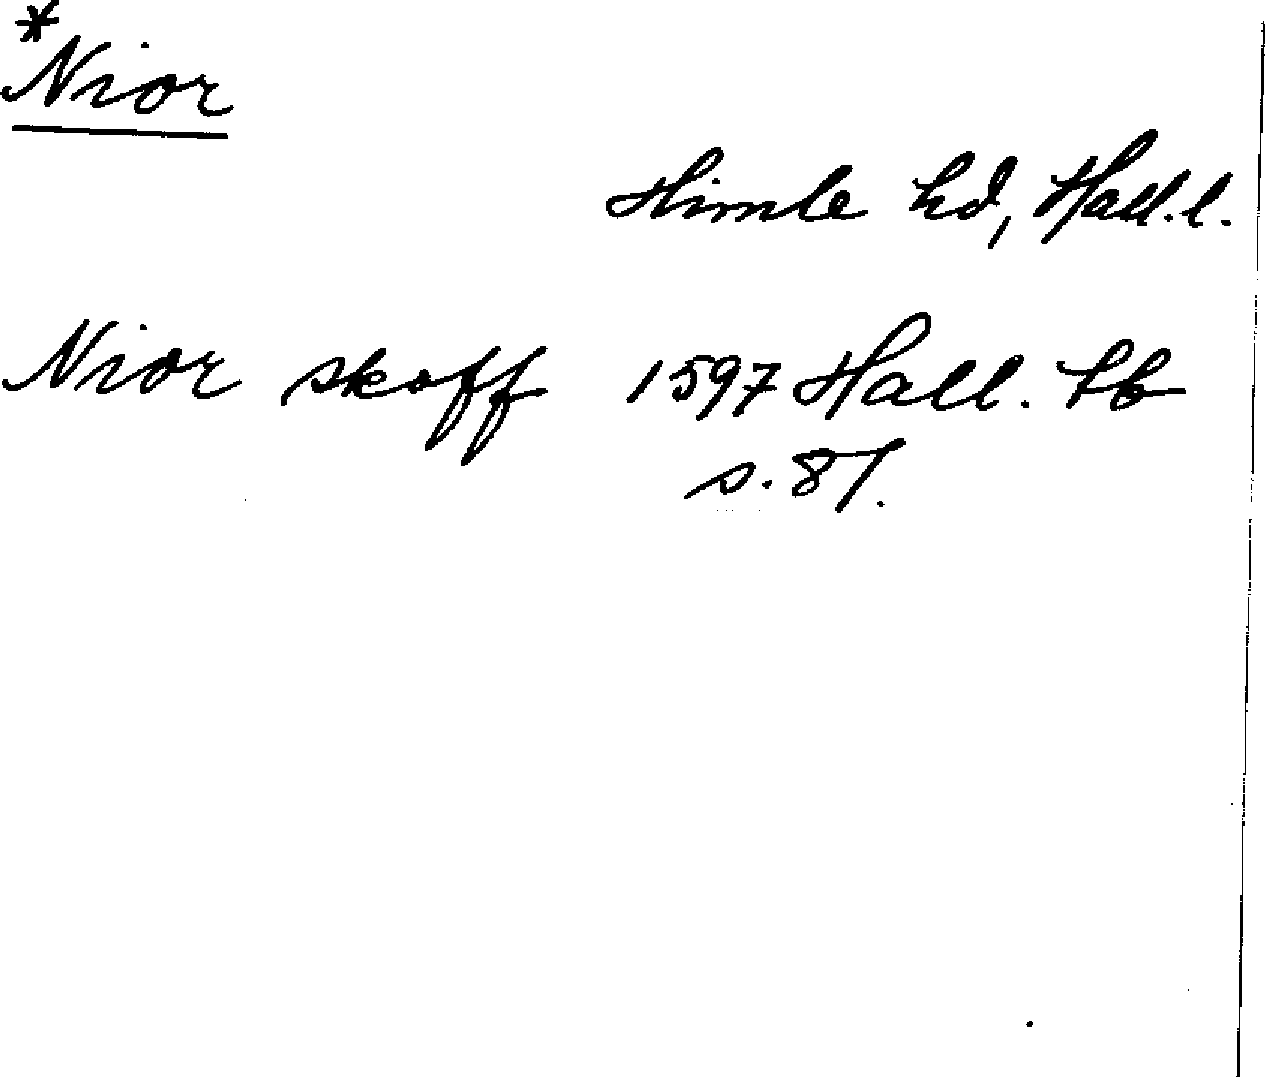 *Nior
Himle hd, Hall.l.
Nior skoff 1597 Hall. lb
s. 87.